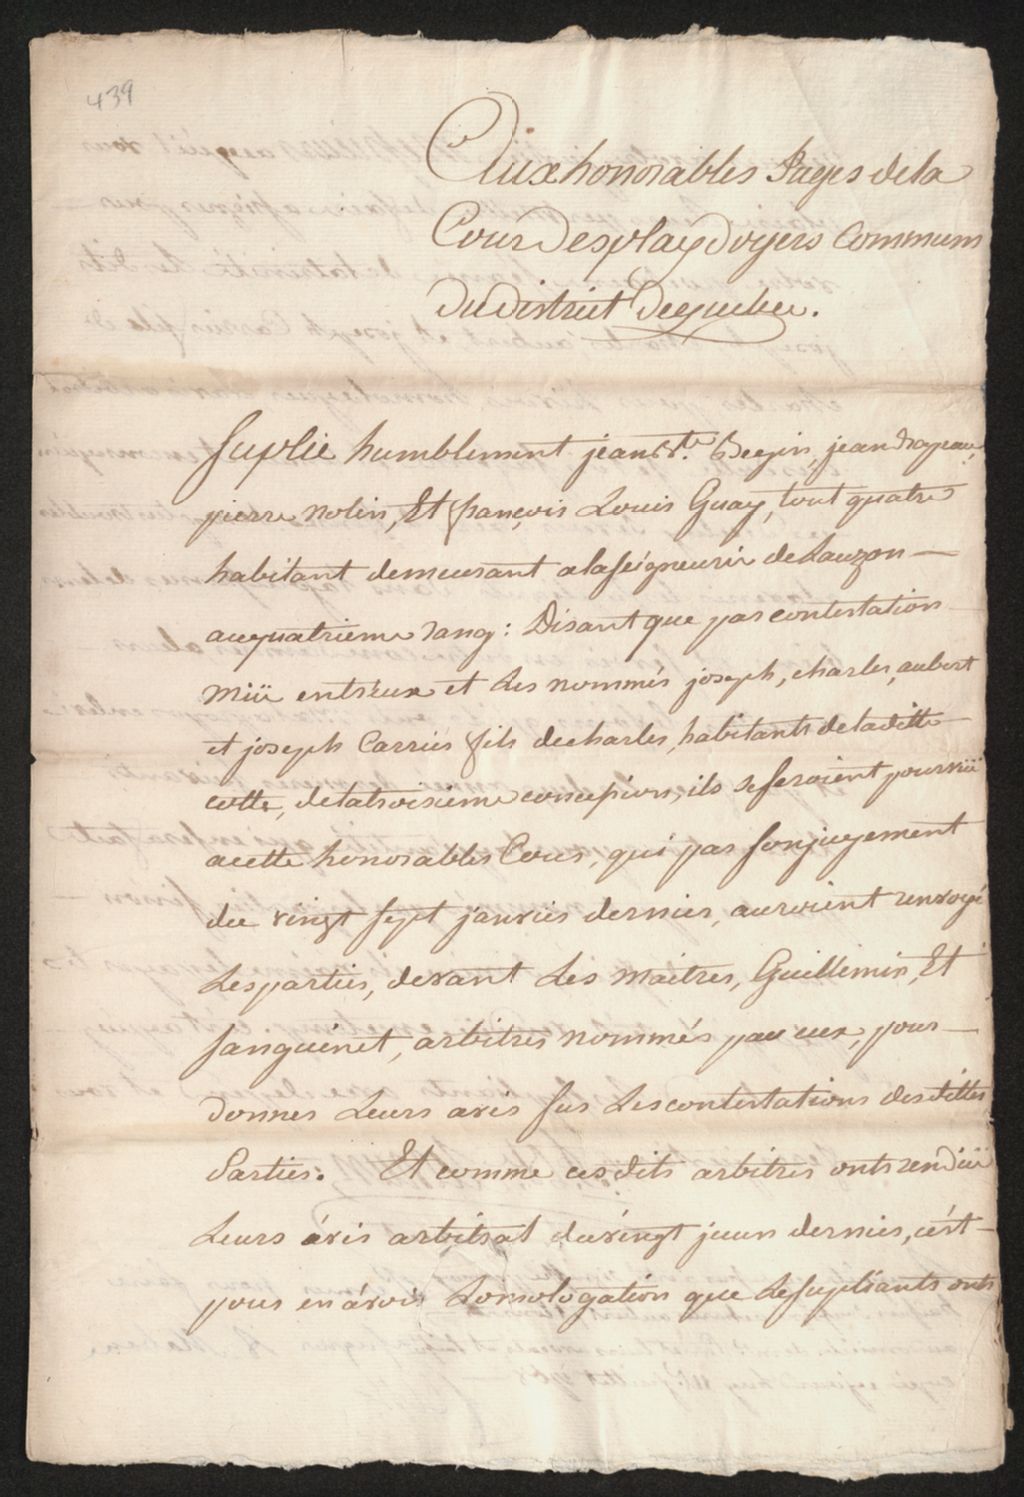 439
Aux honorables Juges dela
Cour Desplaydoyers Communs
Du district Dequebec.
Suplie humblement jean Bte. Begin, jean drapeau,
pierre nolin, Et françois Louis Guay, tout quatre
habitant demeurant alaseigneurie deLauzon
auquatrieme rang : Disant que par contestation
müe entr'eux et Les nommés joseph, charles, aubert
et joseph Carrier fils decharles, habitants deladitte
cotte, delatroisieme concession, ils seseroient pourvüs
acette honorables Cour, qui par sonjugement
du vingt sept janvier dernier, auroient renvoyé
Lesparties, devant Les maitres, Guillemin, Et
sanguinet, arbitres nommés par eux, pour
donner Leurs avis sur Lescontestations desdittes
Parties. Et comme cesdits arbitres onts rendüe
Leurs avis arbitral duvingt juin dernier, c'est
pour en avoir Lomologation que Lesupliants onts